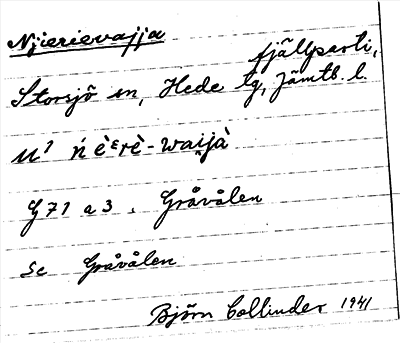 Njierievajja
fjällparti,
Storsjö sn, Hede tg, Jämtl. l.
u¹ ń èᵋrè-waijà
G 71 a 3. Gråvålen
Se Gråvålen
Björn Collinder 1941